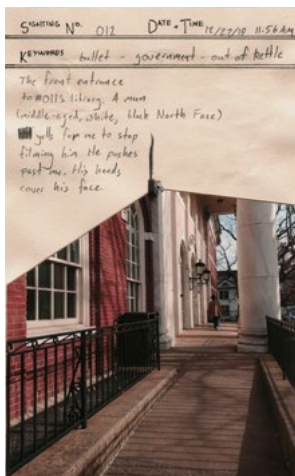 SIGHTING NO. 012 DATE + TIME 12/27/19 11:56 AM
KEYWORDS bullet - government - out of kettle
The front entrance
to #011's library. A man
(middle-aged, white, black North Face)
yells for me to stop
filming him. He pushes
past me. His hands
cover his face.